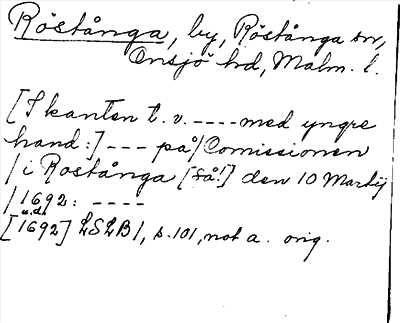 Röstånga, by, Röstånga sn,
Onsjö hd, Malm. l.
[I kanten t. v. ---- med yngre
hand:] --- på/Comissionen
/i Rostånga [så!] den 10 Martij
/1692: ----
u.d.
[1692] LSLB1, s. 101, not a. orig.